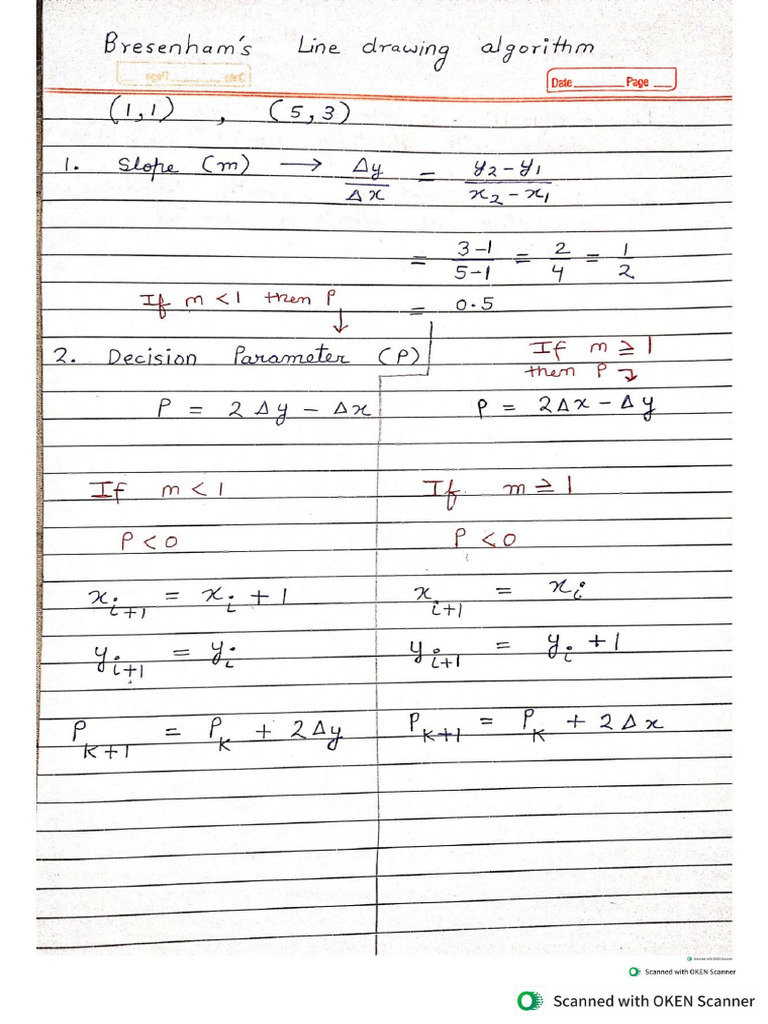 Bresenham's Line drawing algorithm
Date Page
(1,1) , (5,3)
1. Slope (m) → Δy/Δx = y₂-y₁/x₂-x₁
= 3-1/5-1 = 2/4 = 1/2
If m <1 then P = 0.5
↓
2. Decision Parameter (P) If m ≥ 1
then P ↴
P = 2Δy - Δx P = 2Δx - Δy
If m < 1 If m ≥ 1
P < 0 P < 0
xᵢ₊₁ = xᵢ + 1 xᵢ₊₁ = xᵢ
yᵢ₊₁ = yᵢ yᵢ₊₁ = yᵢ + 1
P_K+1 = P_K + 2Δy P_K+1 = P_K + 2Δx
Scanned with OKEN Scanner
Scanned with OKEN Scanner
Scanned with OKEN Scanner